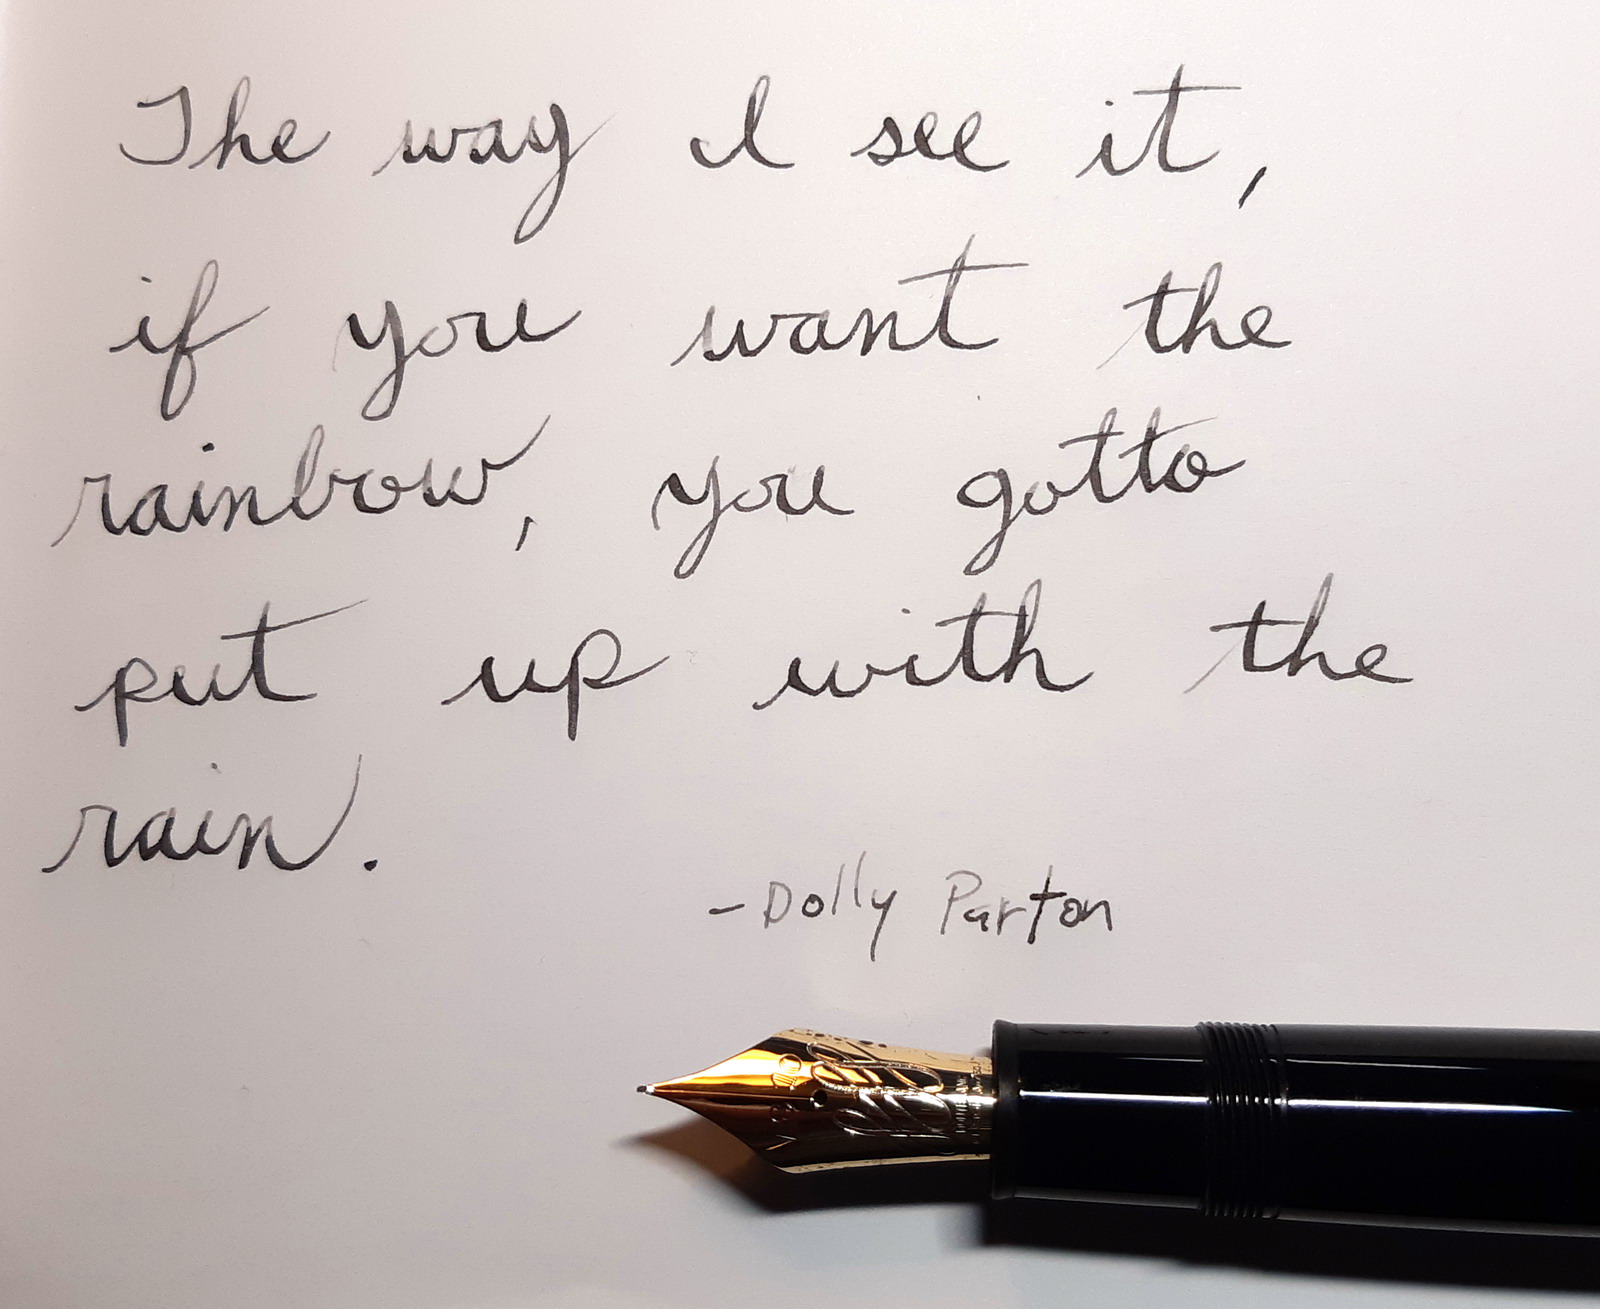 The way I see it,
if you want the
rainbow, you gotto
put up with the
rain.
-Dolly Parton